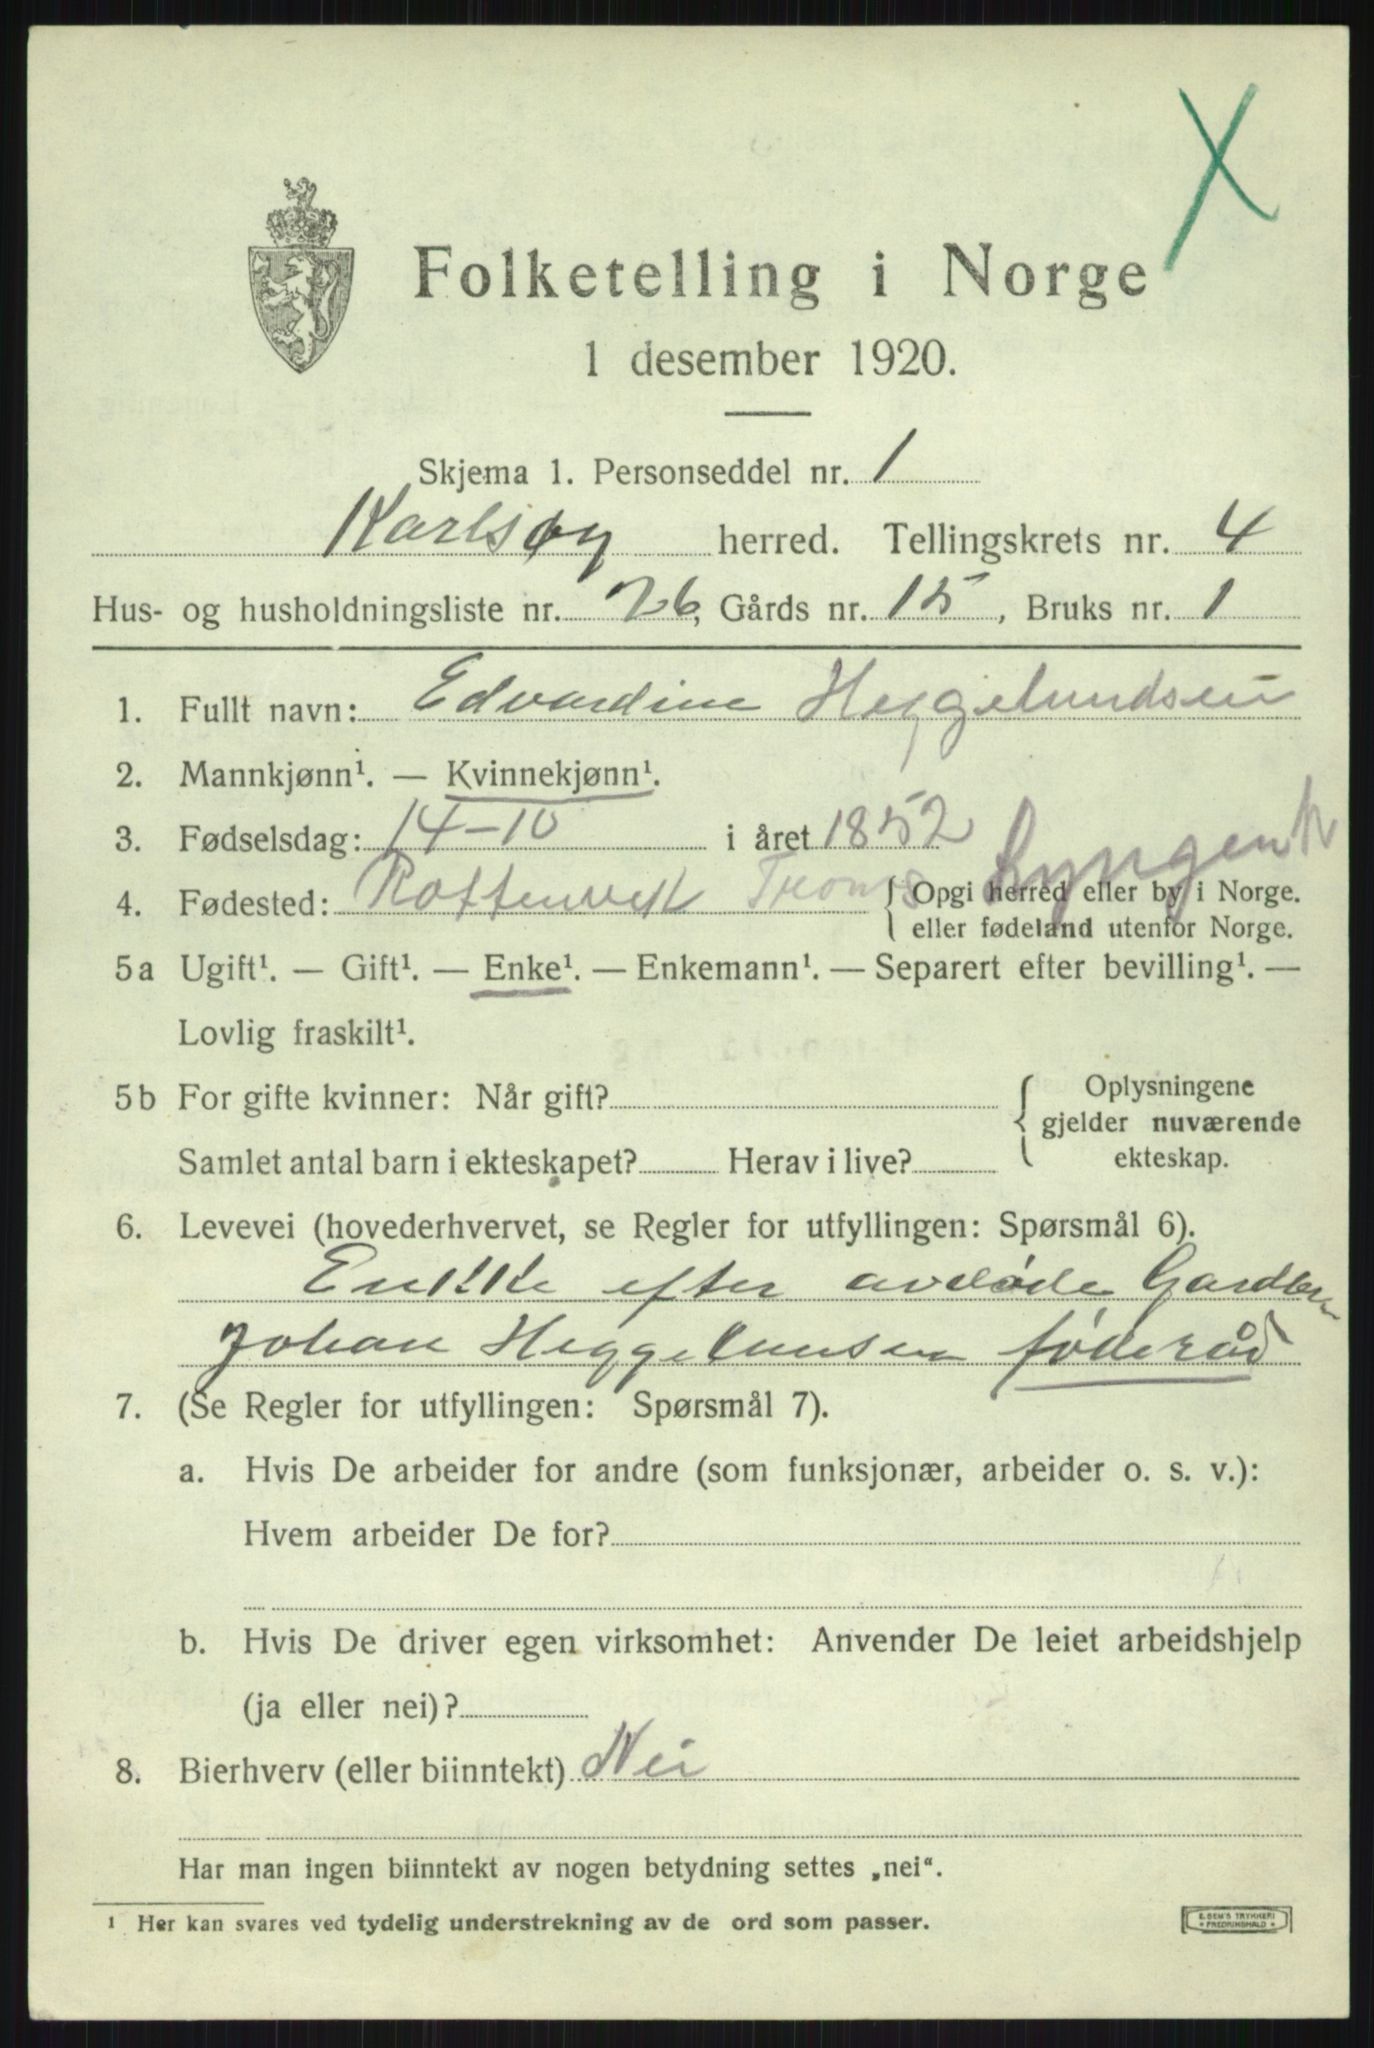 Folketelling i Norge
1 desember 1920.
Skjema 1. Personseddel nr. 1
Karlsøy herred. Tellingskrets nr. 4
Hus- og husholdningsliste nr. 26, Gårds nr. 15, Bruks nr. 1
1. Fullt navn: Edvardine Heggelundsen
2. Mannkjønn¹. — Kvinnekjønn¹.
3. Fødselsdag: 14-10 i året 1852
4. Fødested: Rottenvik Troms Lyngen { Opgi herred eller by i Norge.
eller fødeland utenfor Norge.
5a Ugift¹. — Gift¹. — Enke¹. — Enkemann¹. — Separert efter bevilling¹. —
Lovlig fraskilt¹.
5b For gifte kvinner: Når gift? { Oplysningene
gjelder nuværende
Samlet antal barn i ekteskapet? Herav i live? ekteskap.
6. Levevei (hovederhvervet, se Regler for utfyllingen: Spørsmål 6).
Enkke efter avdøde Gardbr
Johan Heggelunsen føderåd
7. (Se Regler for utfyllingen: Spørsmål 7).
a. Hvis De arbeider for andre (som funksjonær, arbeider o. s. v.):
Hvem arbeider De for?
b. Hvis De driver egen virksomhet: Anvender De leiet arbeidshjelp
(ja eller nei)?
8. Bierhverv (eller biinntekt) Nei
Har man ingen biinntekt av nogen betydning settes „nei“.
¹ Her kan svares ved tydelig understrekning av de ord som passer.
E. SEM'S TRYKKERI
FREDRIKSHALD